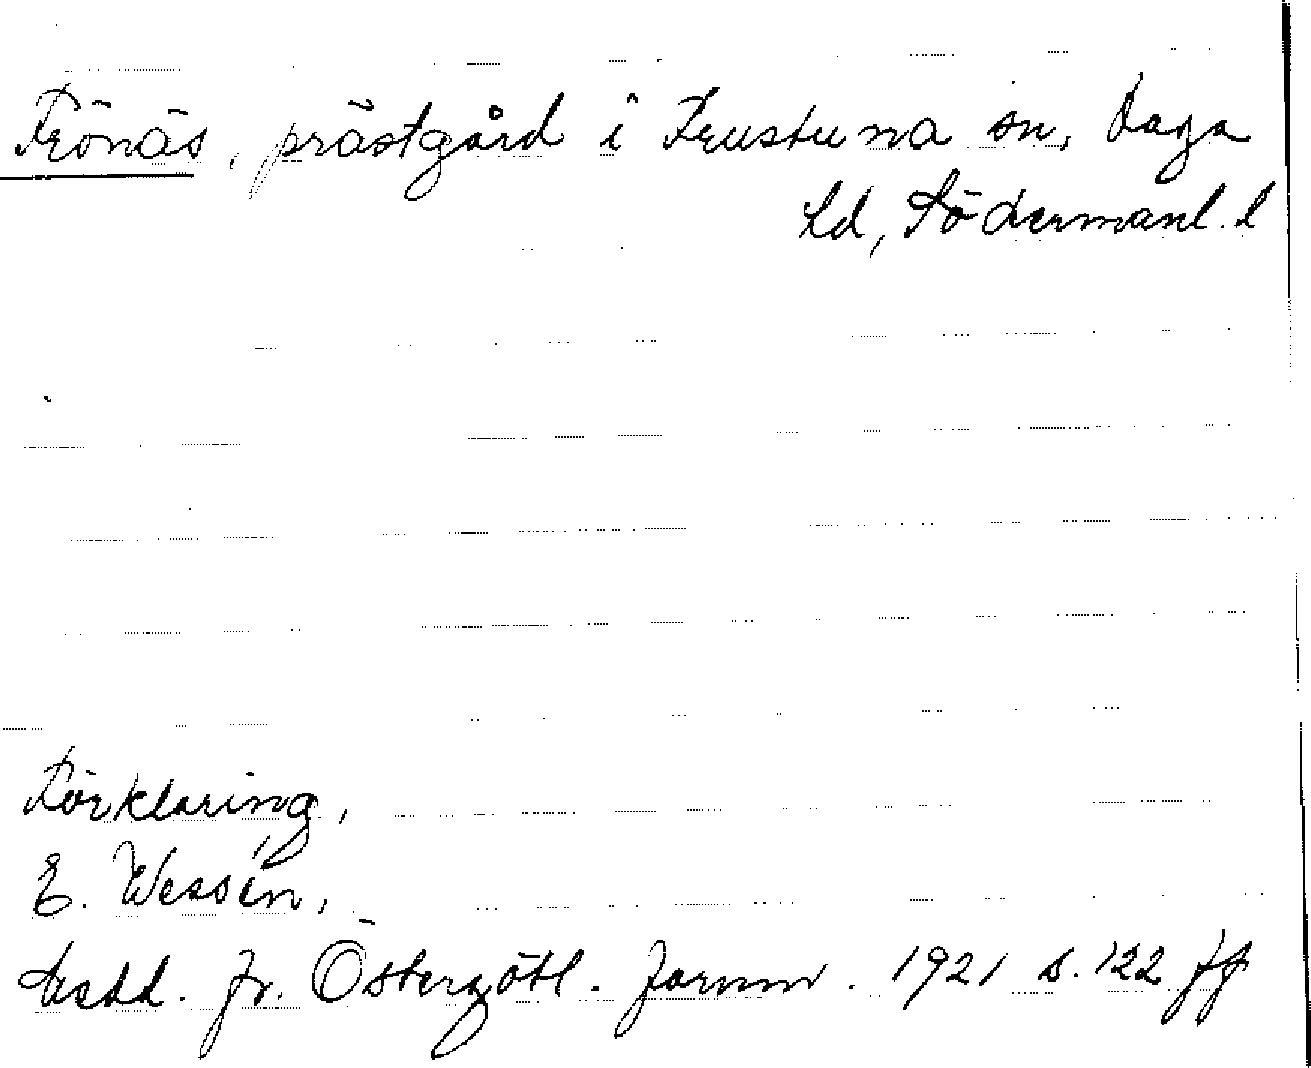 Frönäs, prästgård i Frustuna sn, Daga
hd, Södermanl. l
Förklaring,
E. Wessén,
Medd. fr. Östergötl. fornm. 1921 s. 122 ff